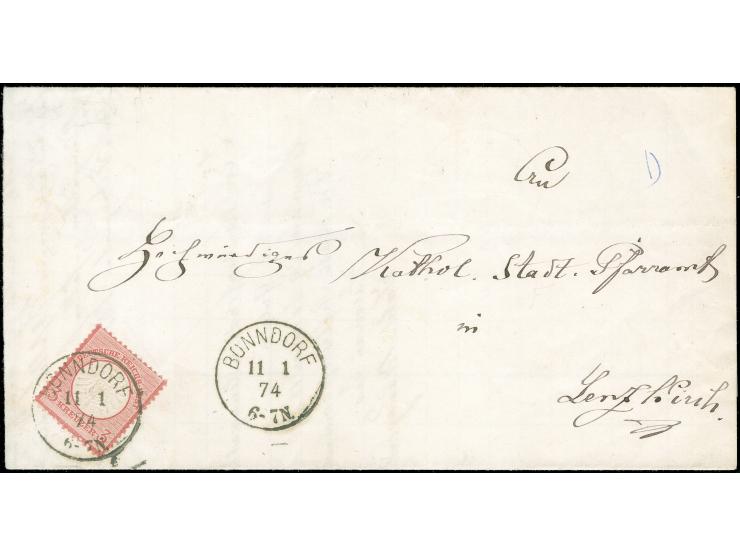 An
D
Hochwürdiges Kathol. Stadt. Pfarramt
in
Lenzkirch.
BONNDORF
11 1
74
6-7N.
BONNDORF
11 1
74
6-7N.
DEUTSCHE REICHS
KREUZER